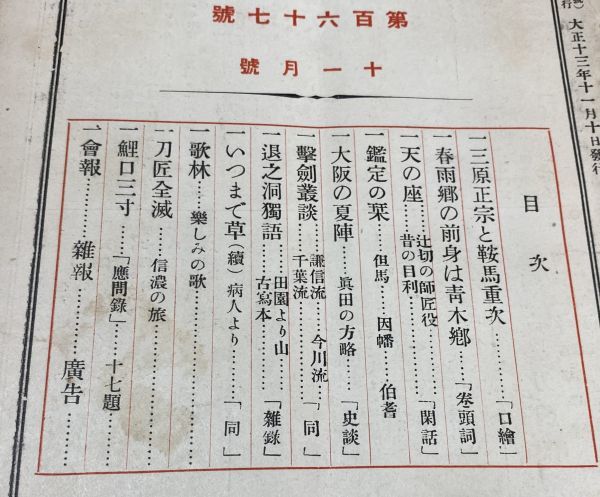 第百六十七號
十一月號
大正十三年十一月十日發行
目次
一三原正宗と鞍馬重次………「口繪」
一春雨郷の前身は青木郷…「卷頭詞」
一天の座……辻切の師匠役 昔の目利……「閑話」
一鑑定の栞…但馬…因幡…伯耆
一大阪の夏陣……眞田の方略……「史談」
一擊劍叢談……謙信流…今川流 千葉流……「同」
一退之洞獨語……田園より山 古寫本……「雜錄」
一いつまで草(續)病人より……「同」
一歌林……樂しみの歌…………
一刀匠全滅……信濃の旅…………
一鯉口三寸……「應問錄」…十七題
一會報………雜報………廣告……